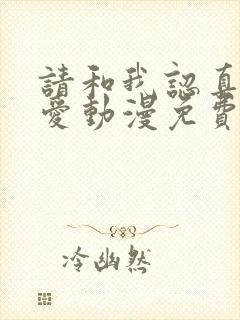 請和我認真
愛動漫免費
冷幽然